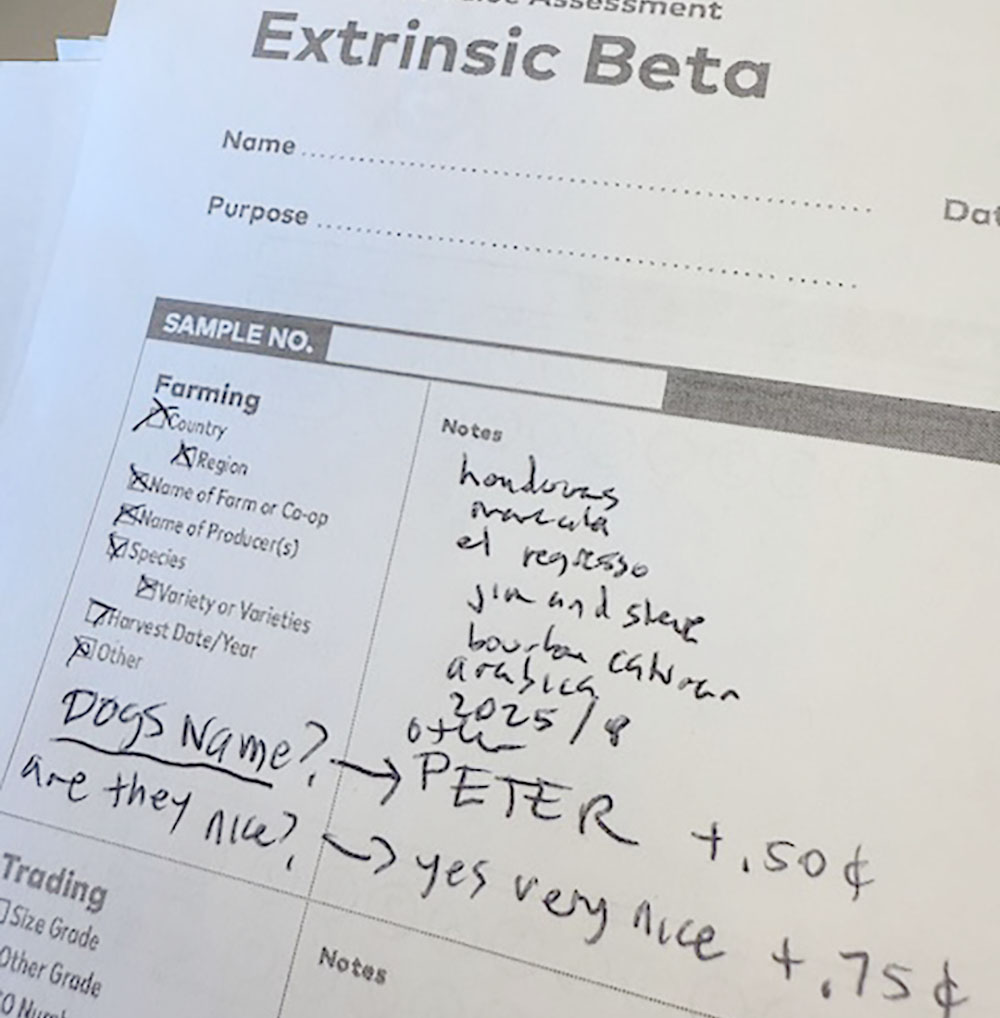 Assessment
Extrinsic Beta
Name
Purpose
SAMPLE NO.
Farming
Country
Region
Name of Farm or Co-op
Name of Producer(s)
Species
Variety or Varieties
Harvest Date/Year
Other
Notes
honduras
marcala
el regreso
jim and
bourbon catuai
arabica
2025/8
other
Dogs Name? → PETER +.50¢
are they nice? → yes very nice +.75¢
Trading
Size Grade
Other Grade
Notes